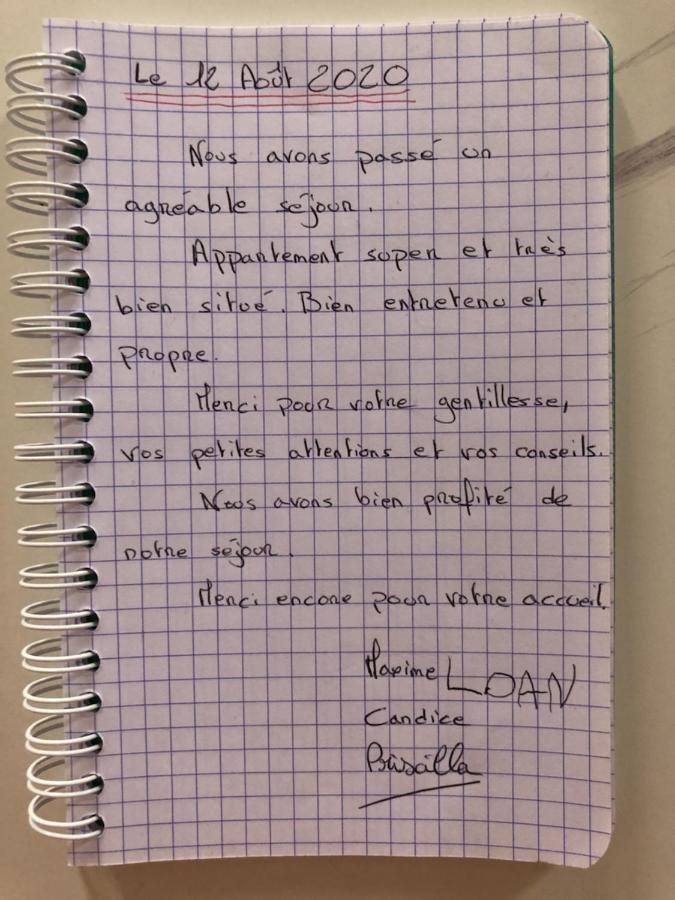 Le 12 Août 2020
Nous avons passé un
agréable séjour.
Appartement super et très
bien situé. Bien entretenu et
propre.
Merci pour votre gentillesse,
vos petites attentions et vos conseils.
Nous avons bien profité de
notre séjour.
Merci encore pour votre accueil.
Maxime LOAN
Candice
Priscilla